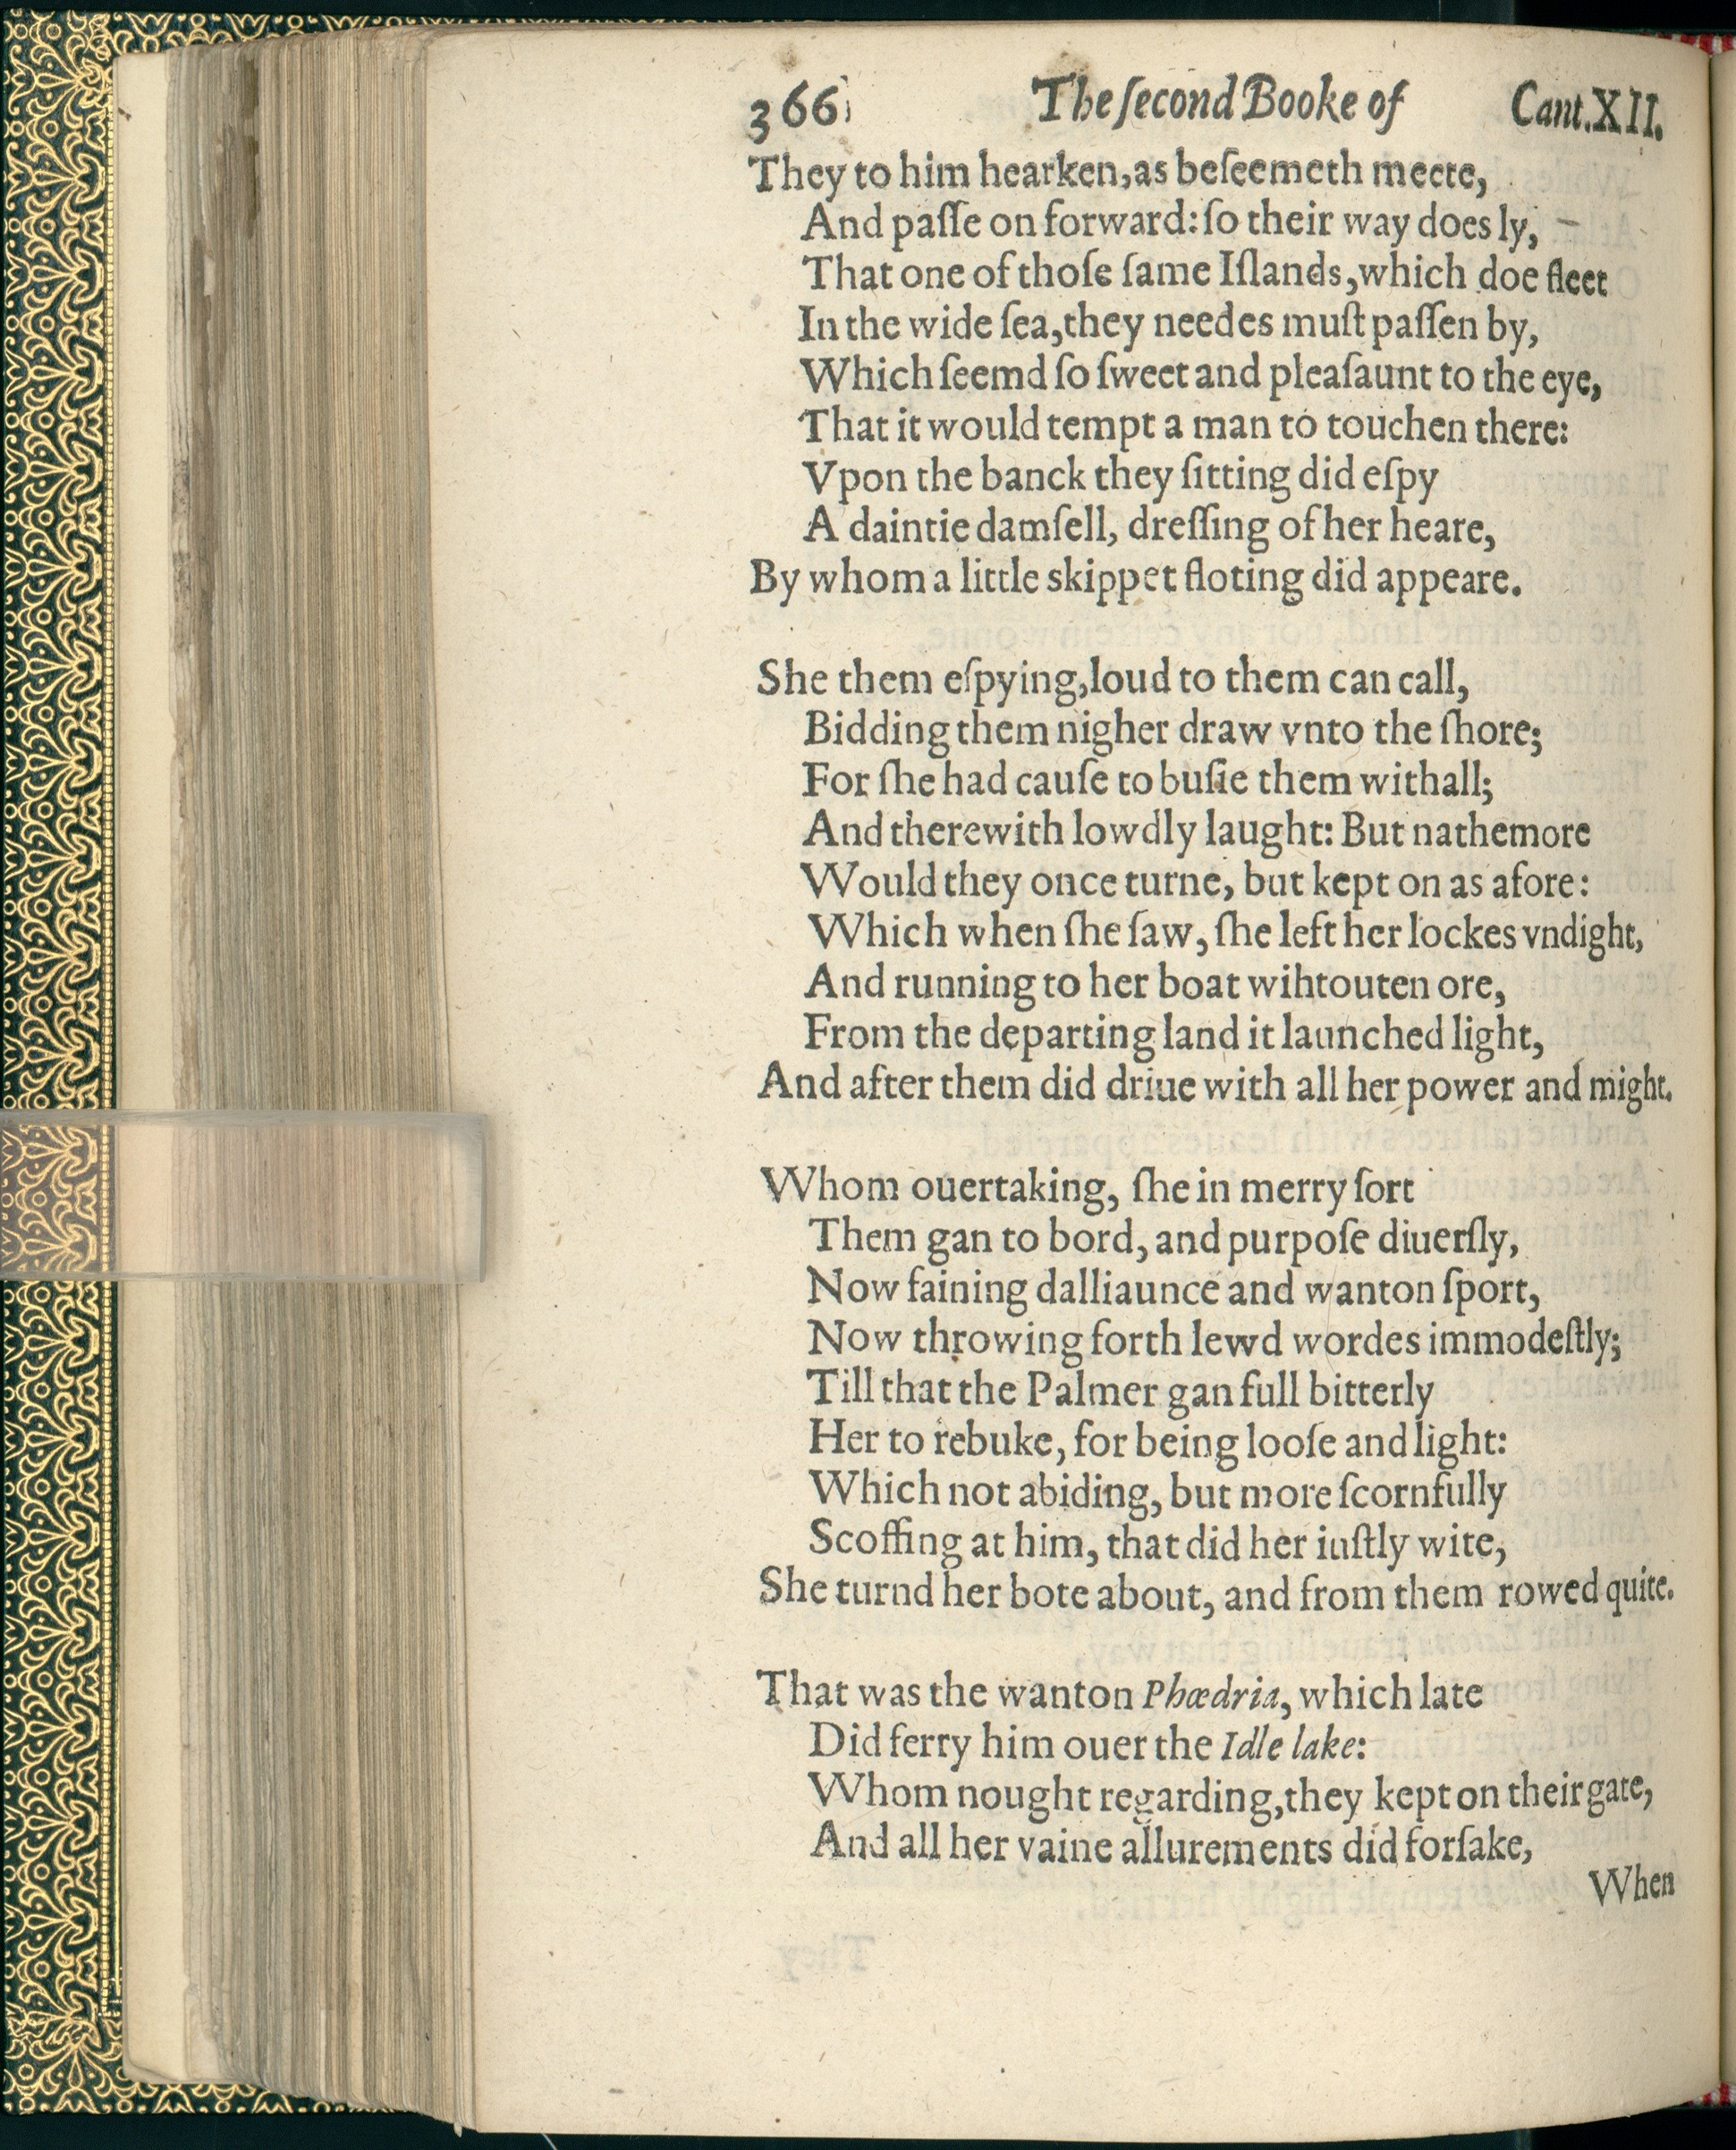 366 The ſecond Booke of Cant.XII.
They to him hearken, as beſeemeth meete,
And paſſe on forward: ſo their way does ly,
That one of thoſe ſame Iſlands, which doe fleet
In the wide ſea, they needes muſt paſſen by,
Which ſeemd ſo ſweet and pleaſaunt to the eye,
That it would tempt a man to touchen there:
Vpon the banck they ſitting did eſpy
A daintie damſell, dreſſing of her heare,
By whom a little skippet floting did appeare.
She them eſpying, loud to them can call,
Bidding them nigher draw vnto the ſhore;
For ſhe had cauſe to buſie them withall;
And therewith lowdly laught: But nathemore
Would they once turne, but kept on as afore:
Which when ſhe ſaw, ſhe left her lockes vndight,
And running to her boat wihtouten ore,
From the departing land it launched light,
And after them did driue with all her power and might.
Whom ouertaking, ſhe in merry ſort
Them gan to bord, and purpoſe diuerſly,
Now faining dalliaunce and wanton ſport,
Now throwing forth lewd wordes immodeſtly;
Till that the Palmer gan full bitterly
Her to rebuke, for being looſe and light:
Which not abiding, but more ſcornfully
Scoffing at him, that did her iuſtly wite,
She turnd her bote about, and from them rowed quite.
That was the wanton Phœdria, which late
Did ferry him ouer the Idle lake:
Whom nought regarding, they kept on their gate,
And all her vaine allurements did forſake,
When